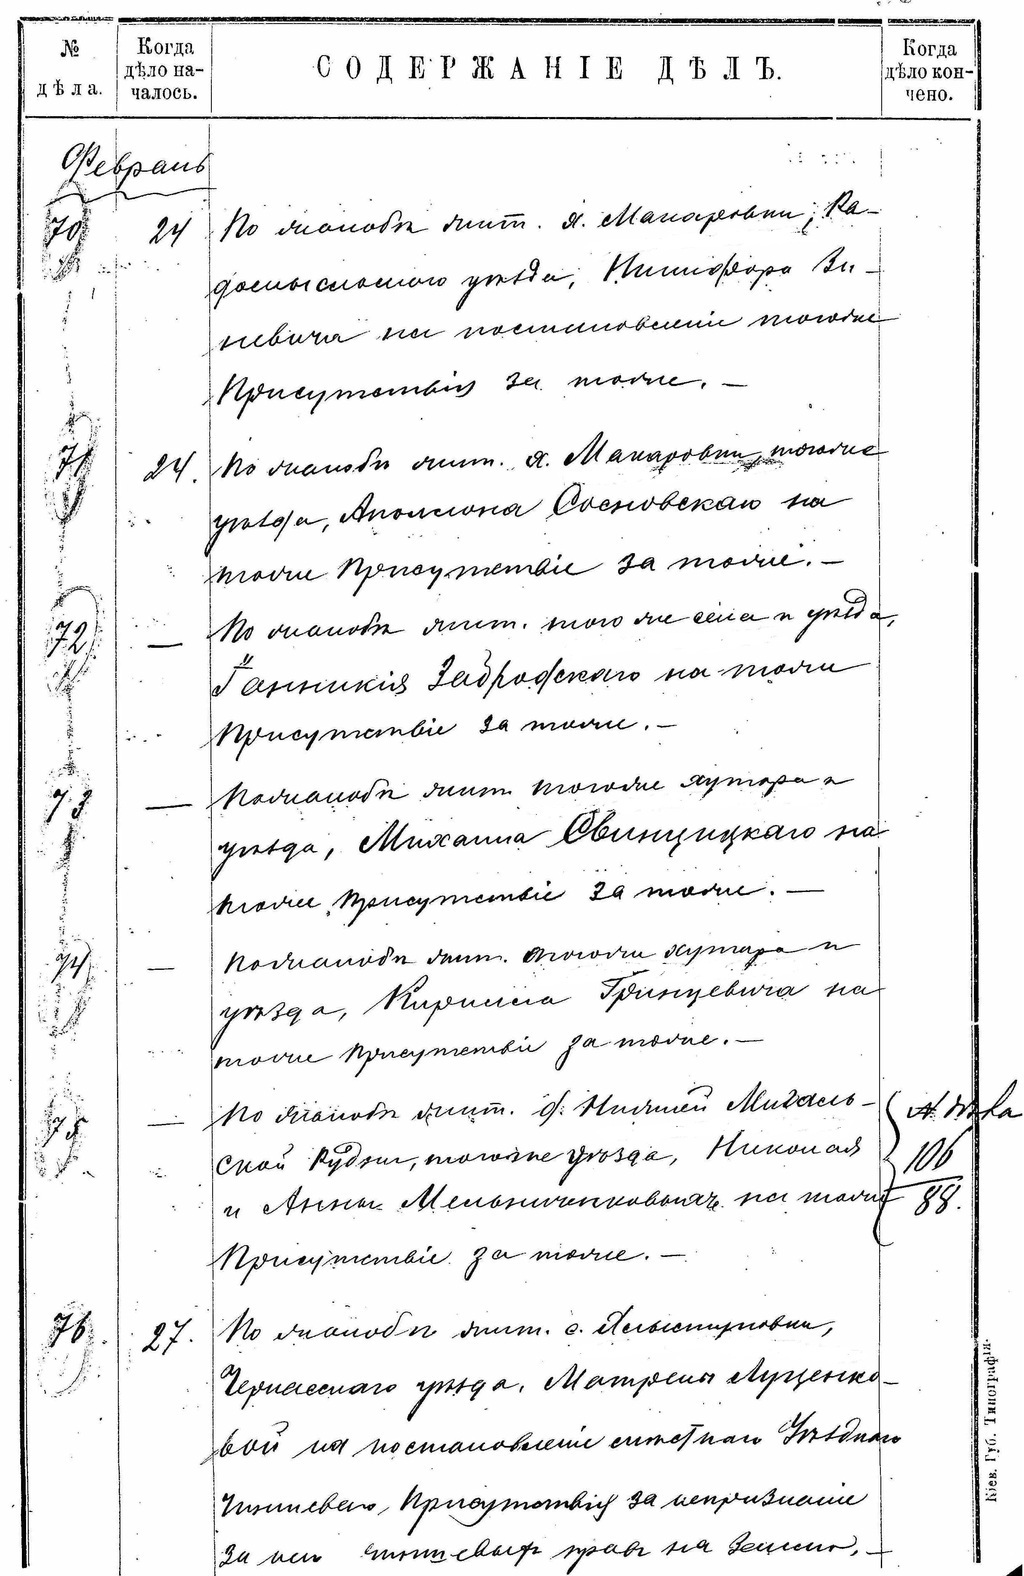 № дѣла.
Когда дѣло началось.
СОДЕРЖАНІЕ ДѢЛЪ.
Когда дѣло кончено.
Февраль
70 24 По жалобѣ жит. д. Макаровки, Ра-
домысльскаго уѣзда, Никифора Зи-
невича на постановленіе тогоже
Присутствія за тоже. —
71 24. По жалобѣ жит. д. Макаровки, тогоже
уѣзда, Аполлона Сосновскаго на
тоже Присутствіе за тоже. —
72 — По жалобѣ жит. того же села и уѣзда,
Задродскаго на тоже
Присутствіе за тоже. —
73 — По жалобѣ жит. тогоже хутора и
уѣзда, Михаила Свинцицкаго на
тоже Присутствіе за тоже. —
74 — По жалобѣ жит. тогоже хутора и
уѣзда, Кирилла Гринцевича на
тоже Присутствіе за тоже. —
75 — По жалобѣ жит. д. Нижней Мигаль-
ской Рудни, тогоже уѣзда, Николая
и Анны Мельниченковыхъ на тоже
Присутствіе за тоже. —
106
88.
76. 27. По жалобѣ жит. с.
Черкасскаго уѣзда, Матрены Луценко-
вой на постановленіе мѣстнаго Уѣзднаго
Чиншеваго Присутствія за непризнаніе
за нею чиншевыхъ правъ на землю. —
Кіев. Губ. Типографія.